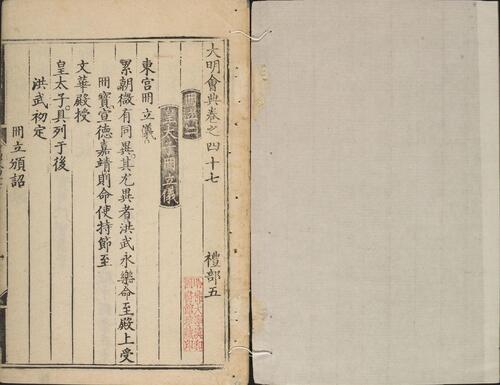 大明會典卷之四十七
禮部五
冊立二
皇太子冊立儀
東宮冊立儀
累朝微有同異。其尤異者洪武永樂命至殿上受
冊寶宣德嘉靖則命使持節至
文華殿授
皇太子。具列于後
洪武初定
冊立頒詔